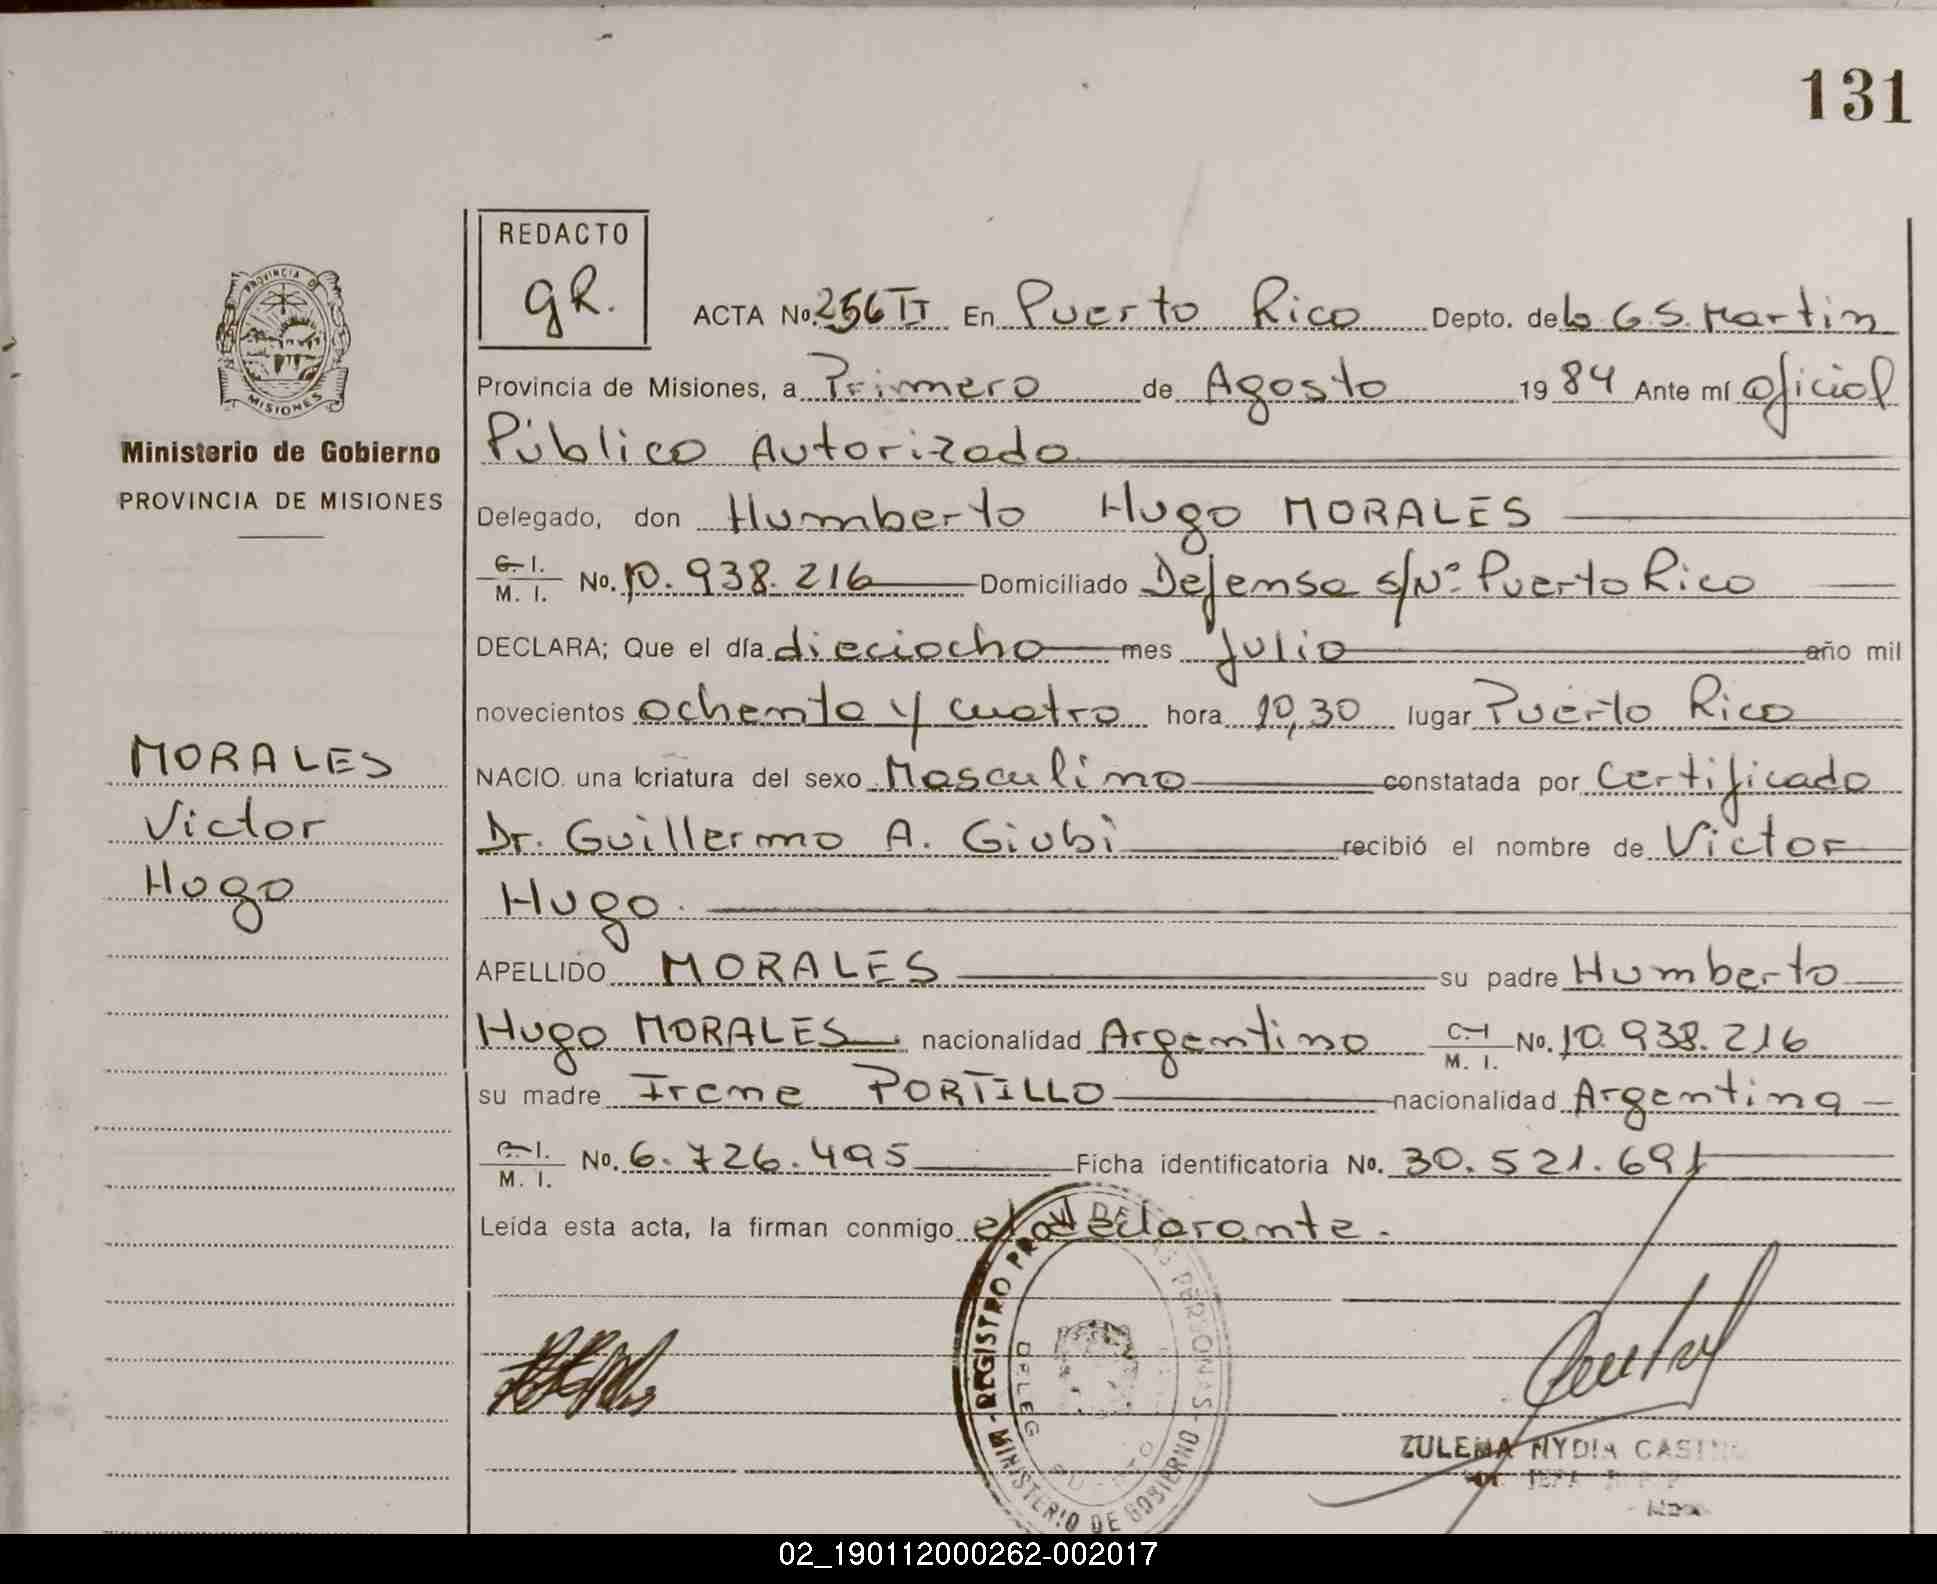 131
REDACTO
gR.
ACTA No. 256 II En Puerto Rico Depto. de Lb. G. S. Martin
Provincia de Misiones, a Primero de Agosto 1984 Ante mí Oficial
Público Autorizado
Delegado, don Humberto Hugo MORALES
C. I. M. I. No. 10.938.216 Domiciliado Defensa s/Nº Puerto Rico
DECLARA; Que el día dieciocho mes Julio año mil
novecientos ochenta y cuatro hora 10,30 lugar Puerto Rico
NACIO. una criatura del sexo Masculino constatada por Certificado
Dr. Guillermo A. Giubi recibió el nombre de Victor
Hugo.
APELLIDO MORALES su padre Humberto
Hugo MORALES. nacionalidad Argentino C. I. M. I. No. 10.938.216
su madre Irene PORTILLO nacionalidad Argentina
C. I. M. I. No. 6.726.495 Ficha identificatoria No. 30.521.691
Leída esta acta, la firman conmigo el declarante.
PROVINCIA DE
MISIONES
Ministerio de Gobierno
PROVINCIA DE MISIONES
MORALES
Victor
Hugo
REGISTRO PROV. DE LAS PERSONAS
MINISTERIO DE GOBIERNO
DELEG
ZULEMA NYDIA
02_190112000262-002017